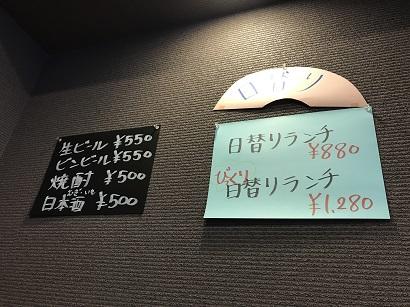 生ビール ¥550
ビンビール ¥550
焼酎 ¥500
むぎ・いも
日本酒 ¥500
日替り
日替りランチ
¥880
びっくり
日替りランチ
¥1,280